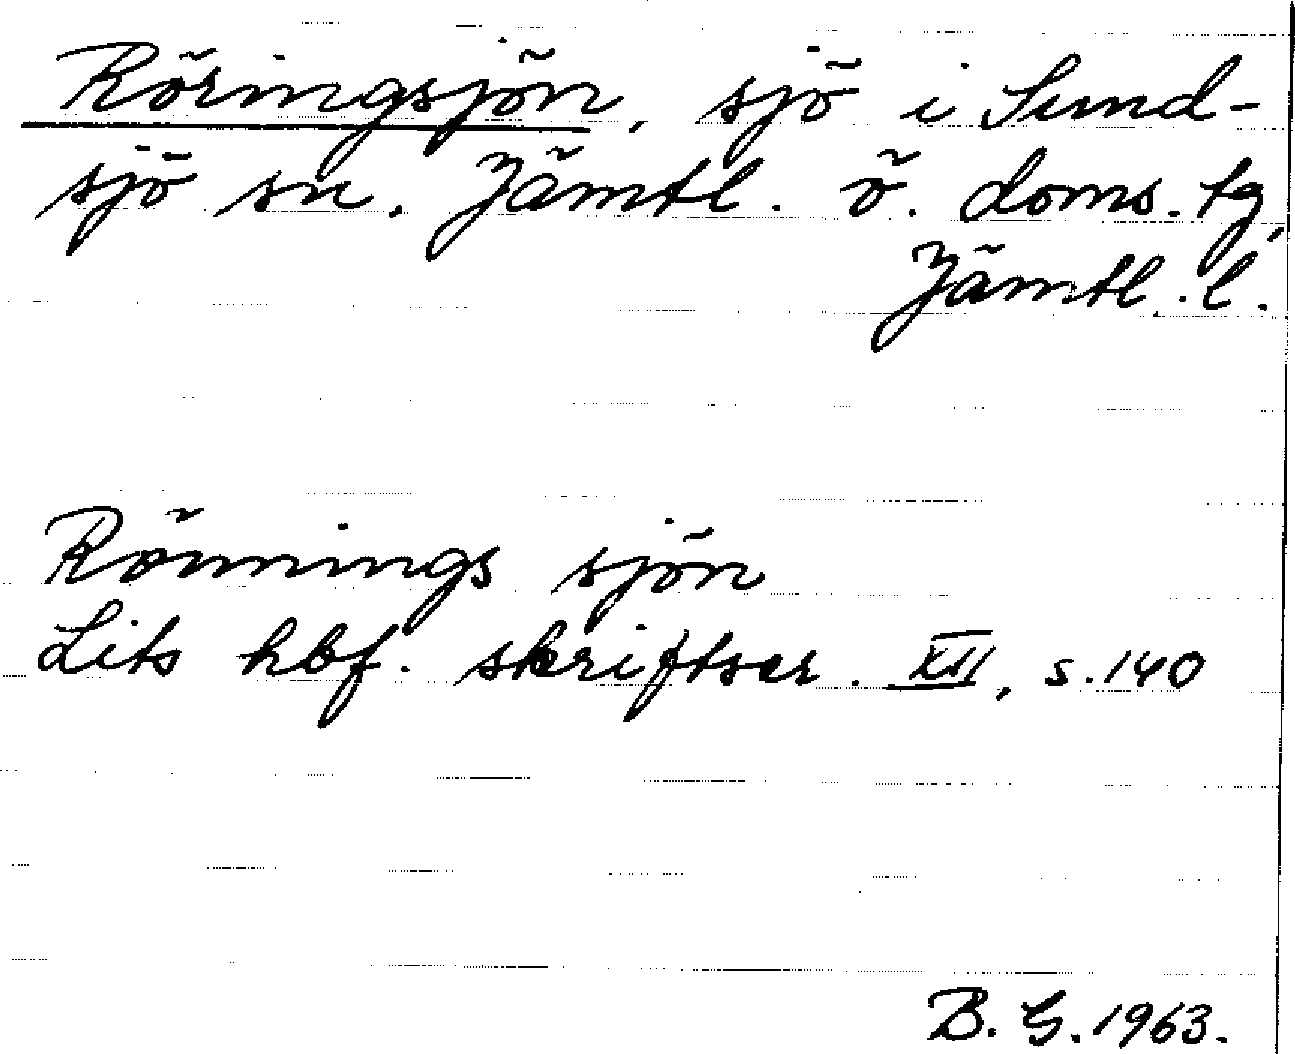 Röringsjön, sjö i Sund-
sjö sn. Jämtl. ö. doms. tg,
Jämtl. l.
Rönnings sjön
Lits hbf. skriftser. XII, s. 140
B. G. 1963.